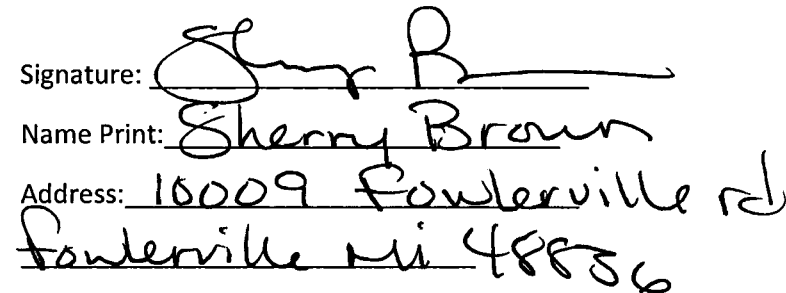 Signature: Sherry B
Name Print: Sherry Brown
Address: 10009 Fowlerville rd
Fowlerville Mi 48836